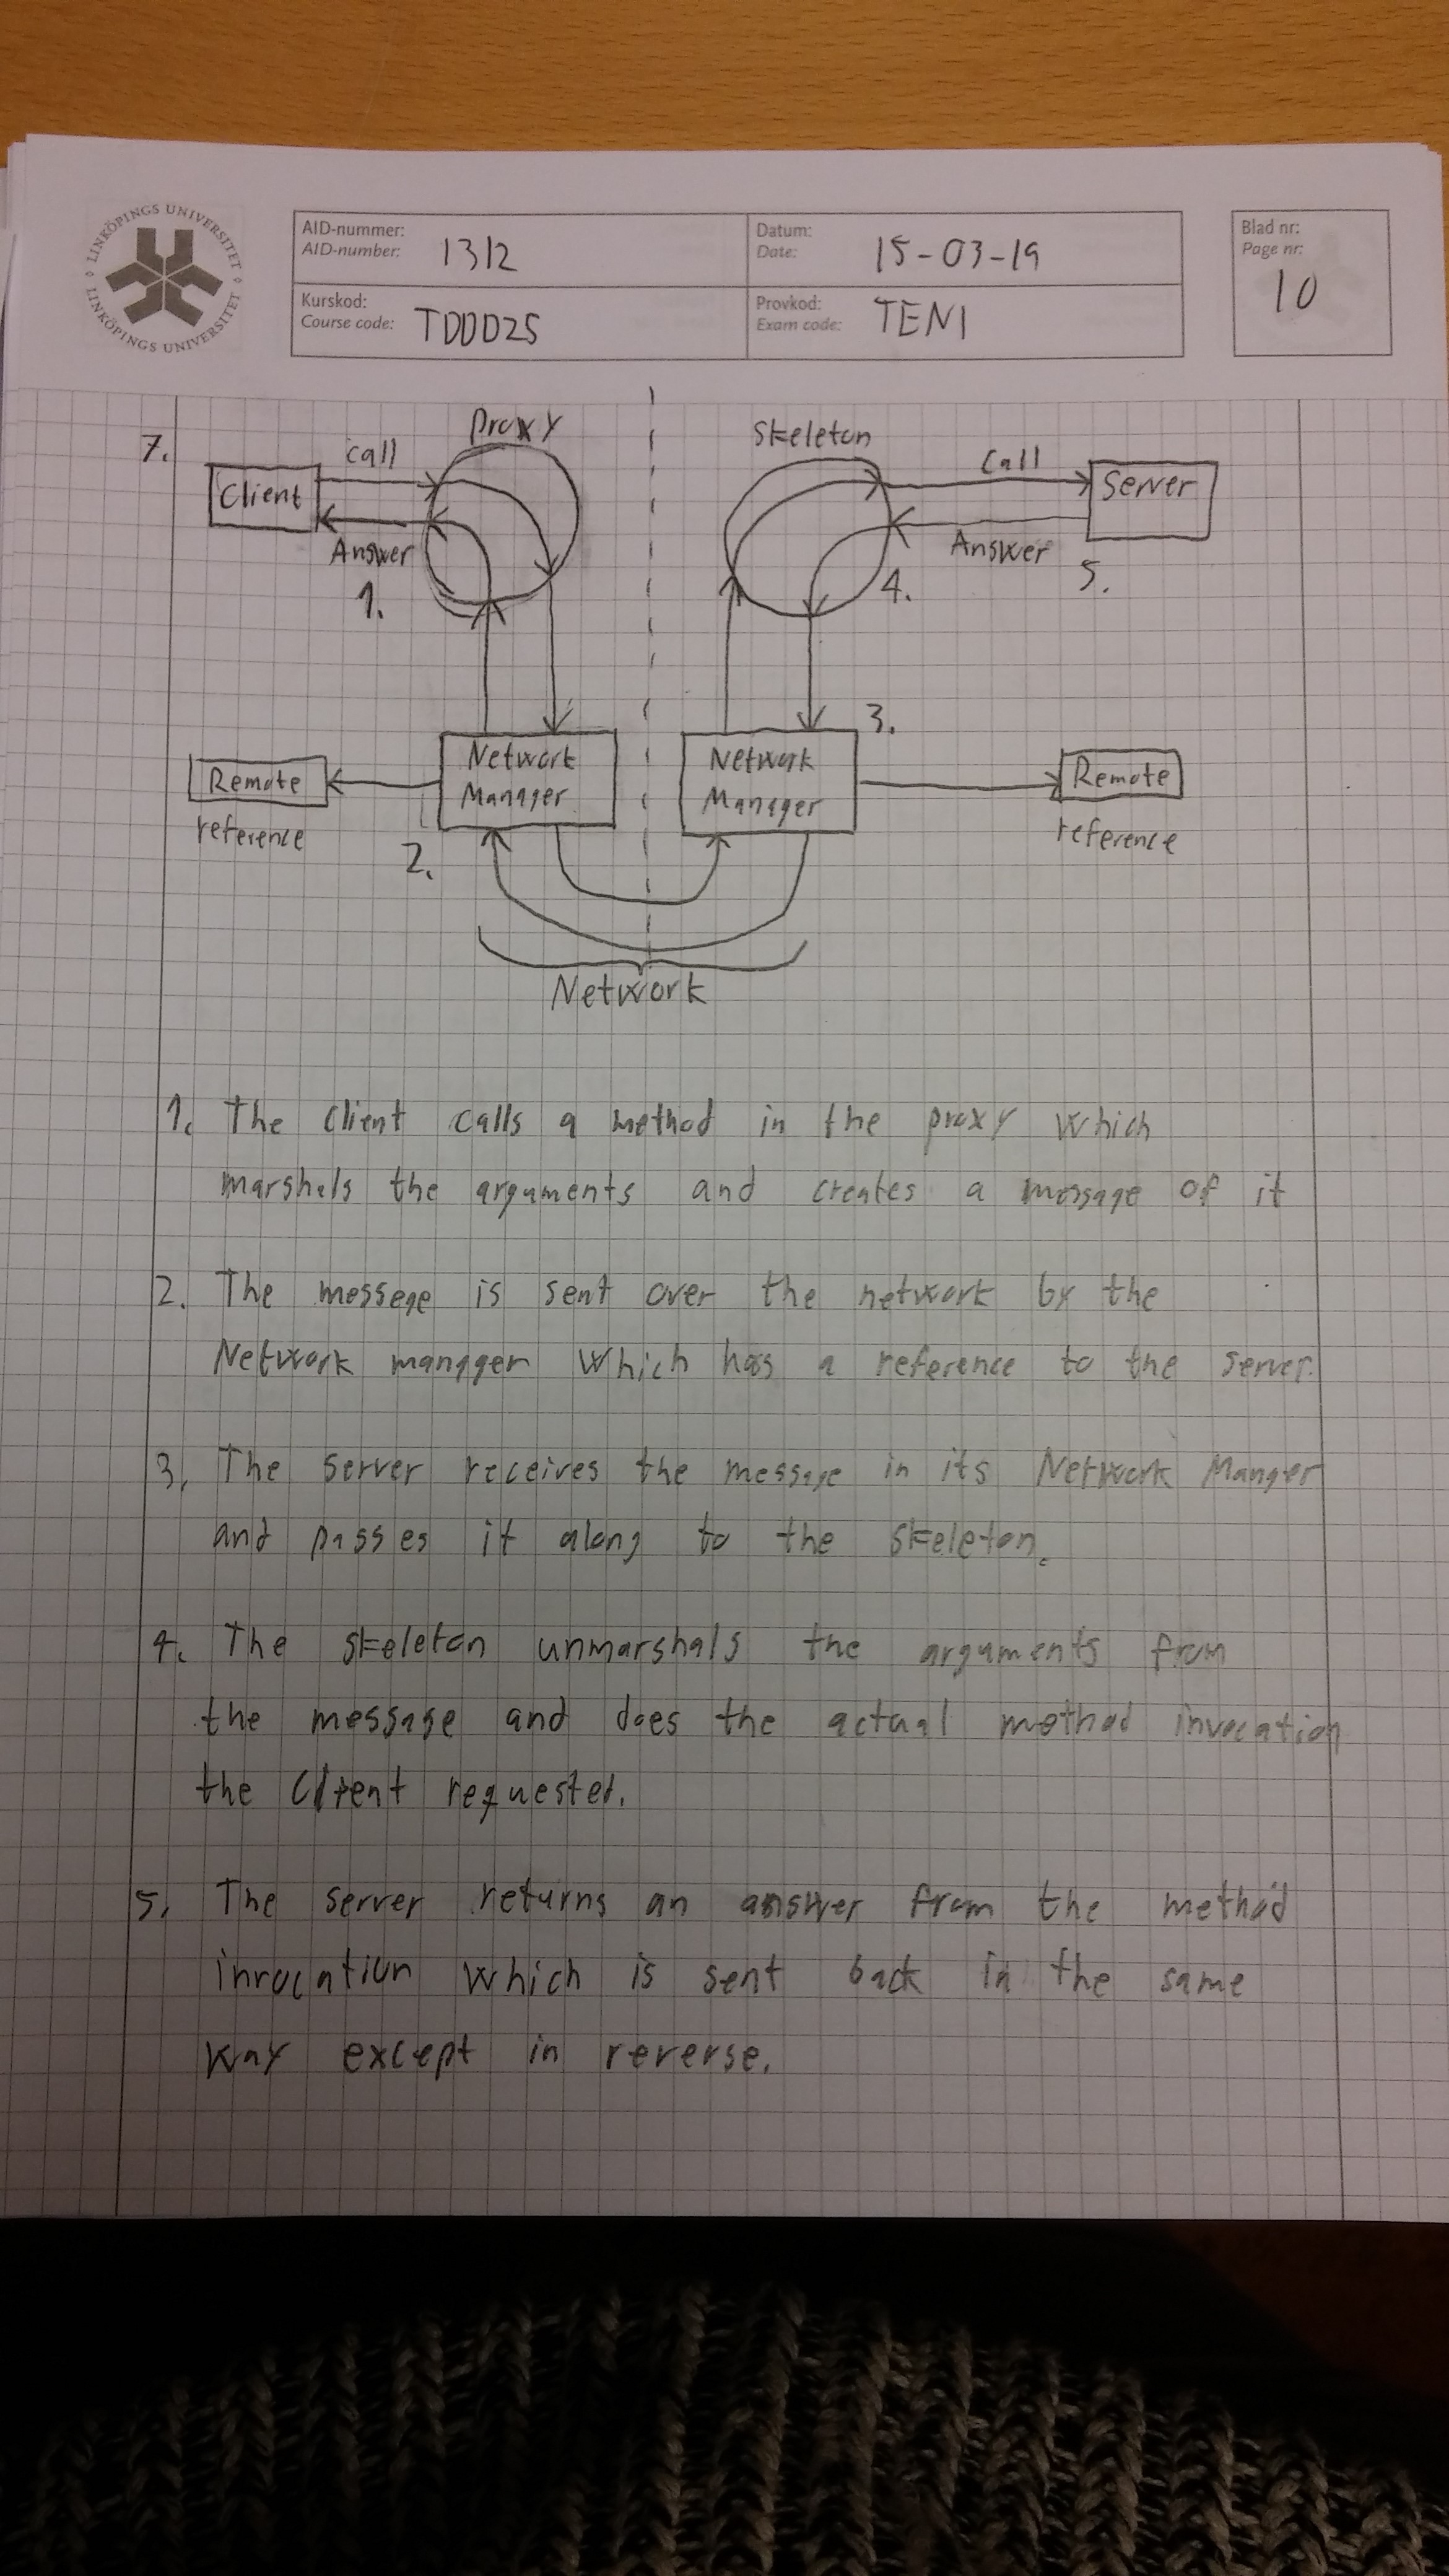 LINKÖPINGS UNIVERSITET
LINKÖPINGS UNIVERSITET
AID-nummer:
AID-number: 1312
Datum:
Date: 15-03-19
Blad nr:
Page nr:
10
Kurskod:
Course code: TDDD25
Provkod:
Exam code: TEN1
7.
Proxy
Skeleton
Call
Call
Client
Server
Answer
Answer
1.
4.
5.
3.
Network
Manager
Network
Manager
Remote
reference
Remote
reference
2.
Network
1. The client calls a method in the proxy which
marshals the arguments and creates a message of it
2. The messege is sent over the network by the
Network manager which has a reference to the server.
3. The server receives the message in its Network Manger
and passes it along to the skeleton.
4. The skeleton unmarshals the arguments from
the message and does the actual method invocation
the client requested.
5. The server returns an answer from the method
invocation which is sent back in the same
way except in reverse.